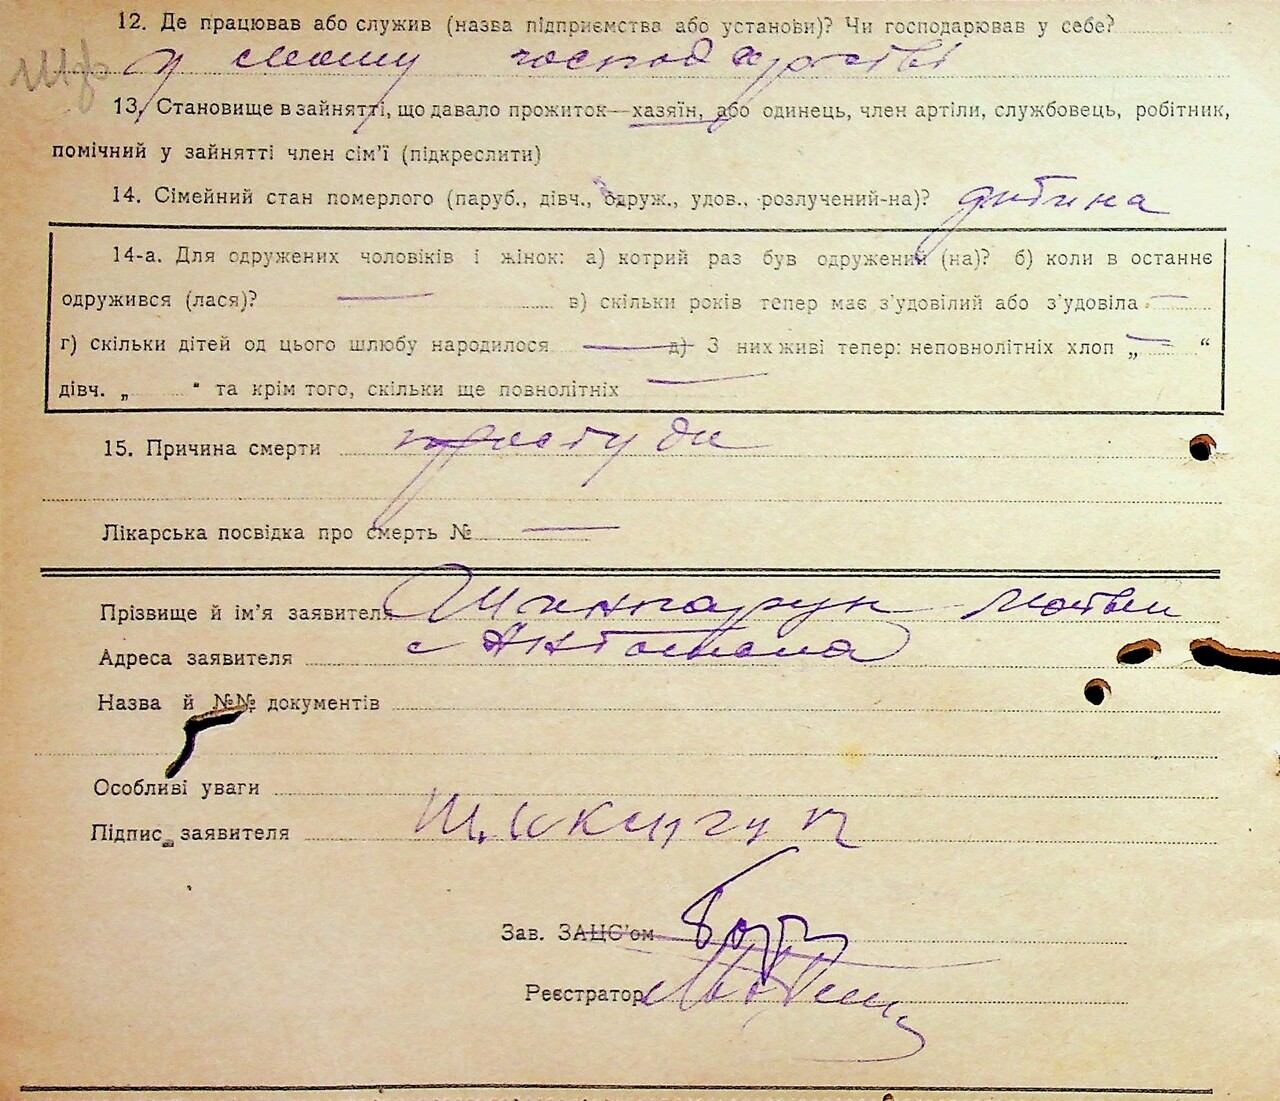 12. Де працював або служив (назва підприємства або установи)? Чи господарював у себе?
у своєму господарстві
13. Становище в зайнятті, що давало прожиток—хазяїн, або одинець, член артіли, службовець, робітник,
помічний у зайнятті член сім’ї (підкреслити)
14. Сімейний стан померлого (паруб., дівч., одруж., удов., розлучений-на)? дитина
14-а. Для одружених чоловіків і жінок: а) котрий раз був одружений (на)? б) коли в останнє
одружився (лася)? — в) скільки років тепер має з’удовілий або з’удовіла —
г) скільки дітей од цього шлюбу народилося — д) З них живі тепер: неповнолітніх хлоп „ — “
дівч. „ “ та крім того, скільки ще повнолітніх —
15. Причина смерти простуда
Лікарська посвідка про смерть № —
Прізвище й ім’я заявителя Матвій
Адреса заявителя с
Назва й №№ документів
Особливі уваги
Підпис заявителя
Зав. ЗАЦС’ом
Реєстратор